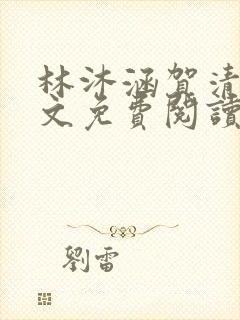 林沐涵賀清
文免費閱讀
劉雷